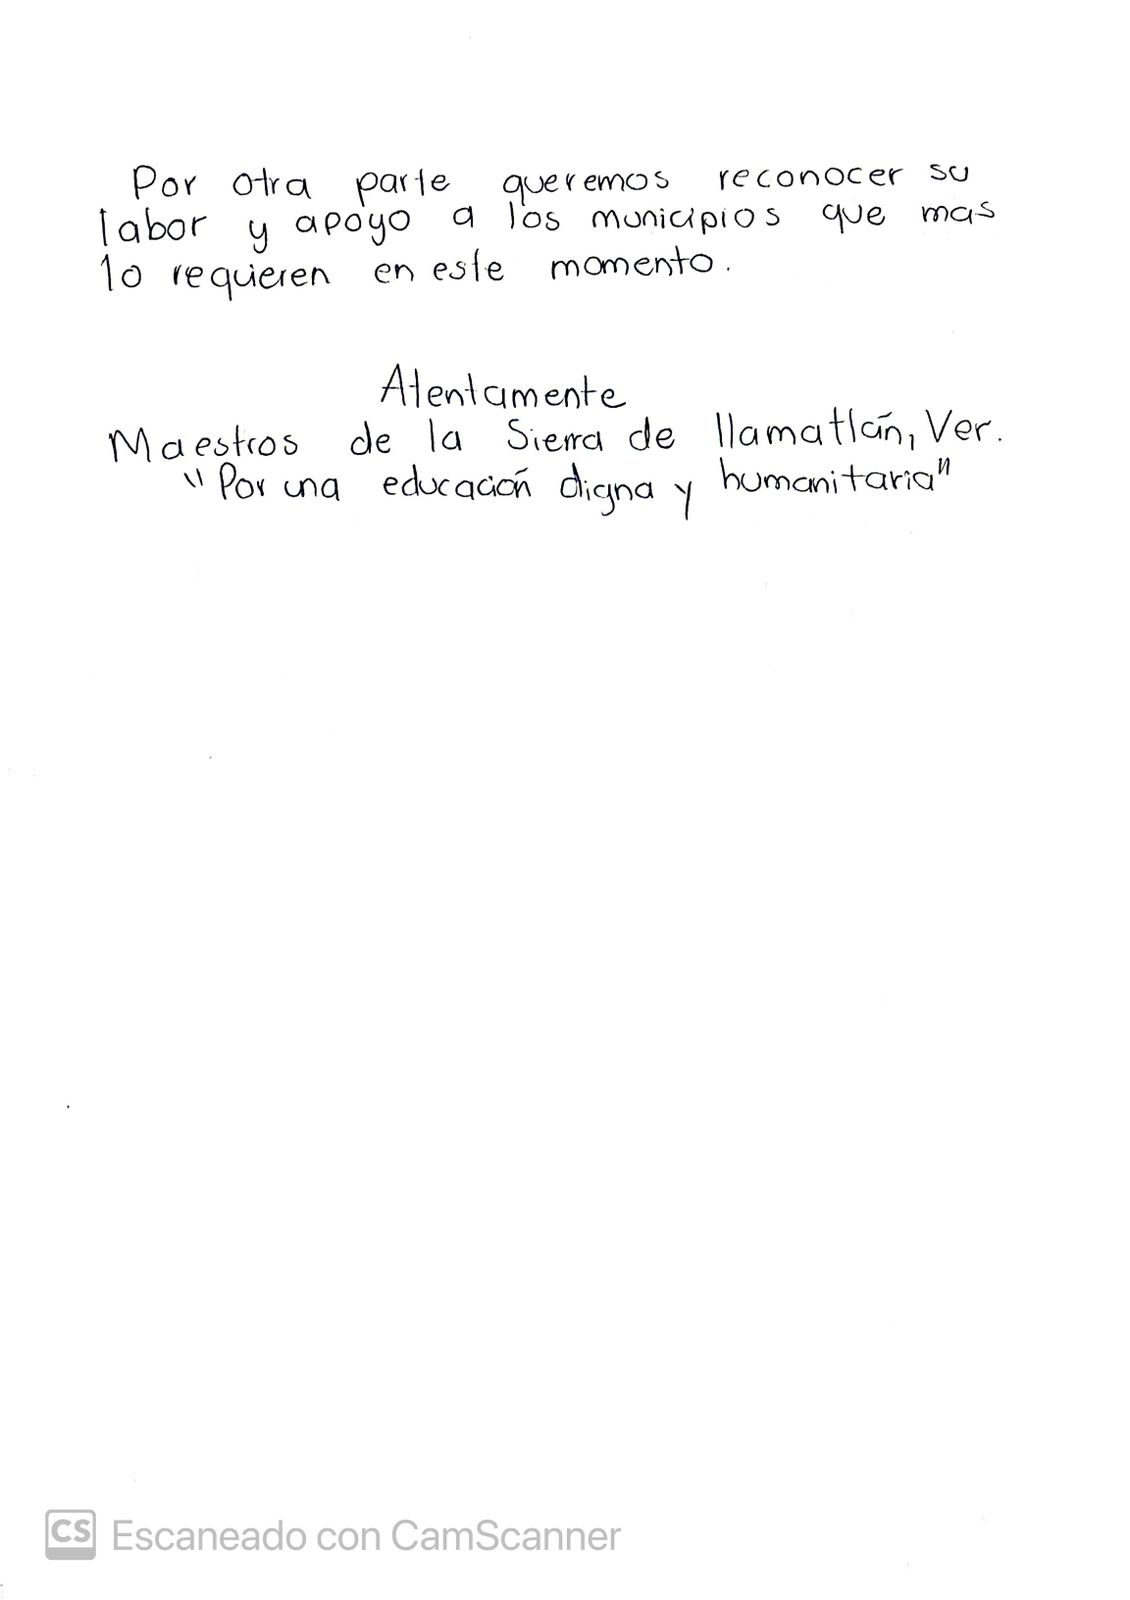 Por otra parte queremos reconocer su
labor y apoyo a los municipios que mas
lo requieren en este momento.
Atentamente
Maestros de la Sierra de Ilamatlán, Ver.
"Por una educación digna y humanitaria"
CS Escaneado con CamScanner